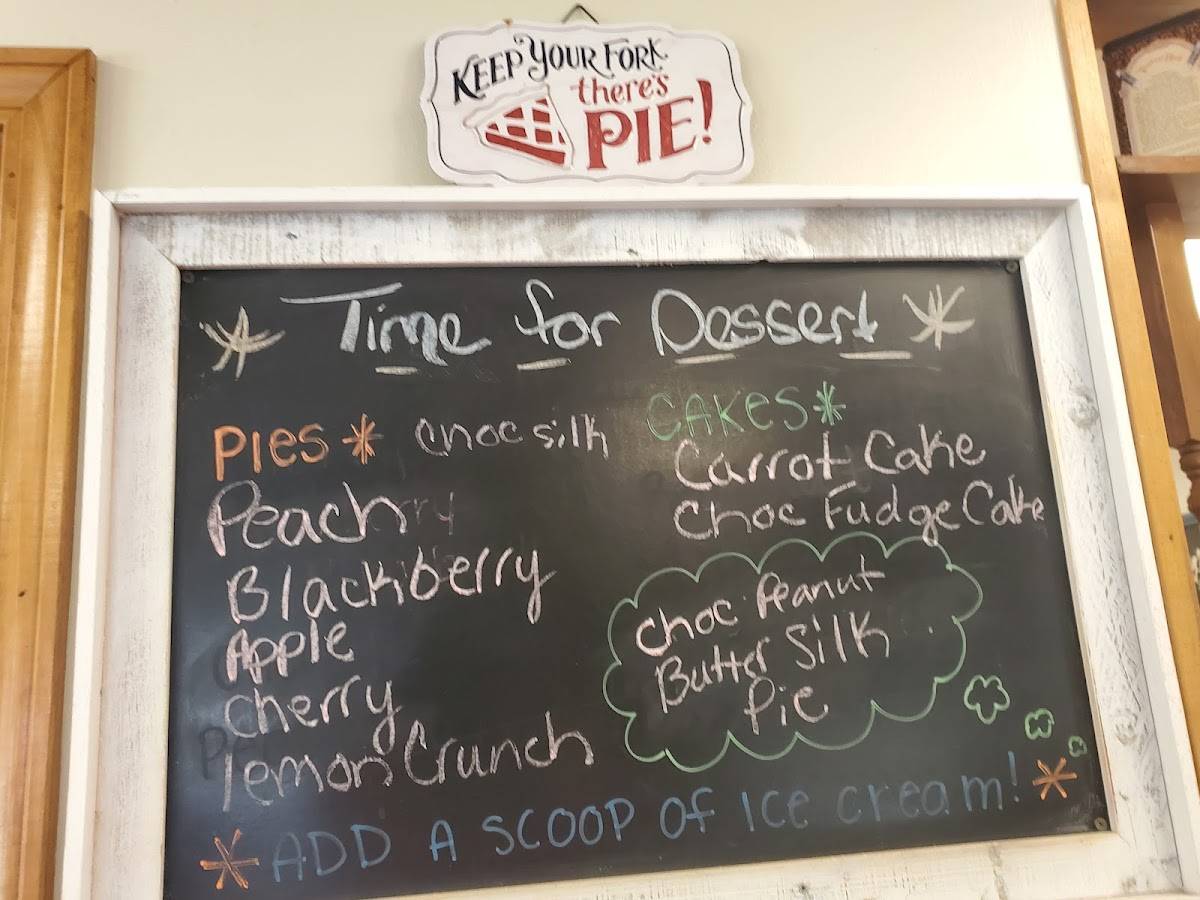 KEEP YOUR FORK
there's
PIE!
Time for Dessert
PIES
choc silk
Peach
Blackberry
Apple
cherry
lemon Crunch
CAKES
Carrot Cake
Choc Fudge Cake
choc Peanut
Butter Silk
Pie
ADD A SCOOP OF ICE cream!